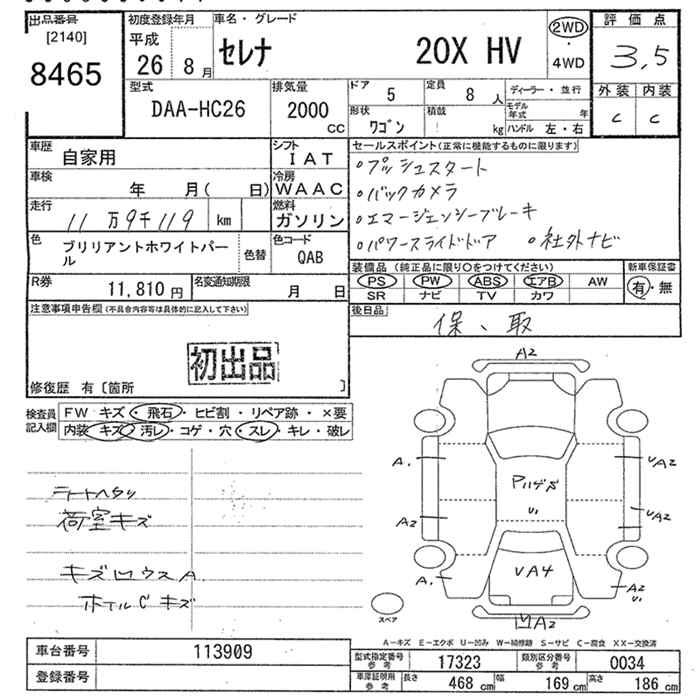 出品番号
[2140]
8465
初度登録年月
平成
26 8月
車名・グレード
セレナ 20X HV
2WD
・
4WD
評価点
3,5
外装 内装
C C
型式
DAA-HC26
排気量
2000
CC
ドア 5
定員 8人
形状
ワゴン
積載
kg
ディーラー・並行
モデル年式 年
ハンドル 左・右
車歴 自家用
シフト
IAT
車検 年 月( 日)
冷房
WAAC
走行 11万9千119 km
燃料
ガソリン
色 ブリリアントホワイトパール
色替
色コード
QAB
R券 11,810円
名変通知期限 月 日
セールスポイント(正常に機能するものに限ります)
・プッシュスタート
・バックカメラ
・エマージェンシーブレーキ
・パワースライドドア ・社外ナビ
装備品(純正品に限り○をつけてください)
PS PW ABS エアB AW
SR ナビ TV カワ
新車保証書
有・無
後日品
保、取
注意事項申告欄(不具合内容等は具体的に記入して下さい)
初出品
修復歴 有〔箇所 〕
検査員記入欄
FW キズ・飛石・ヒビ割・リペア跡・×要
内装 キズ・汚レ・コゲ・穴・スレ・キレ・破レ
シートヘタリ
荷室キズ
キズ凹ウスA.
ホイルC キズ
A2
A.
A2
A.
UA2
UA2
A2
U.
U.
UA4
凹A2
スペア
A-キズ E-エクボ U-凹み W-補修跡 S-サビ C-腐食 XX-交換済
車台番号 113909
登録番号
型式指定番号
参考
17323
類別区分番号
参考
0034
車庫証明用
参考
長さ 468 cm
幅 169 cm
高さ 186 cm